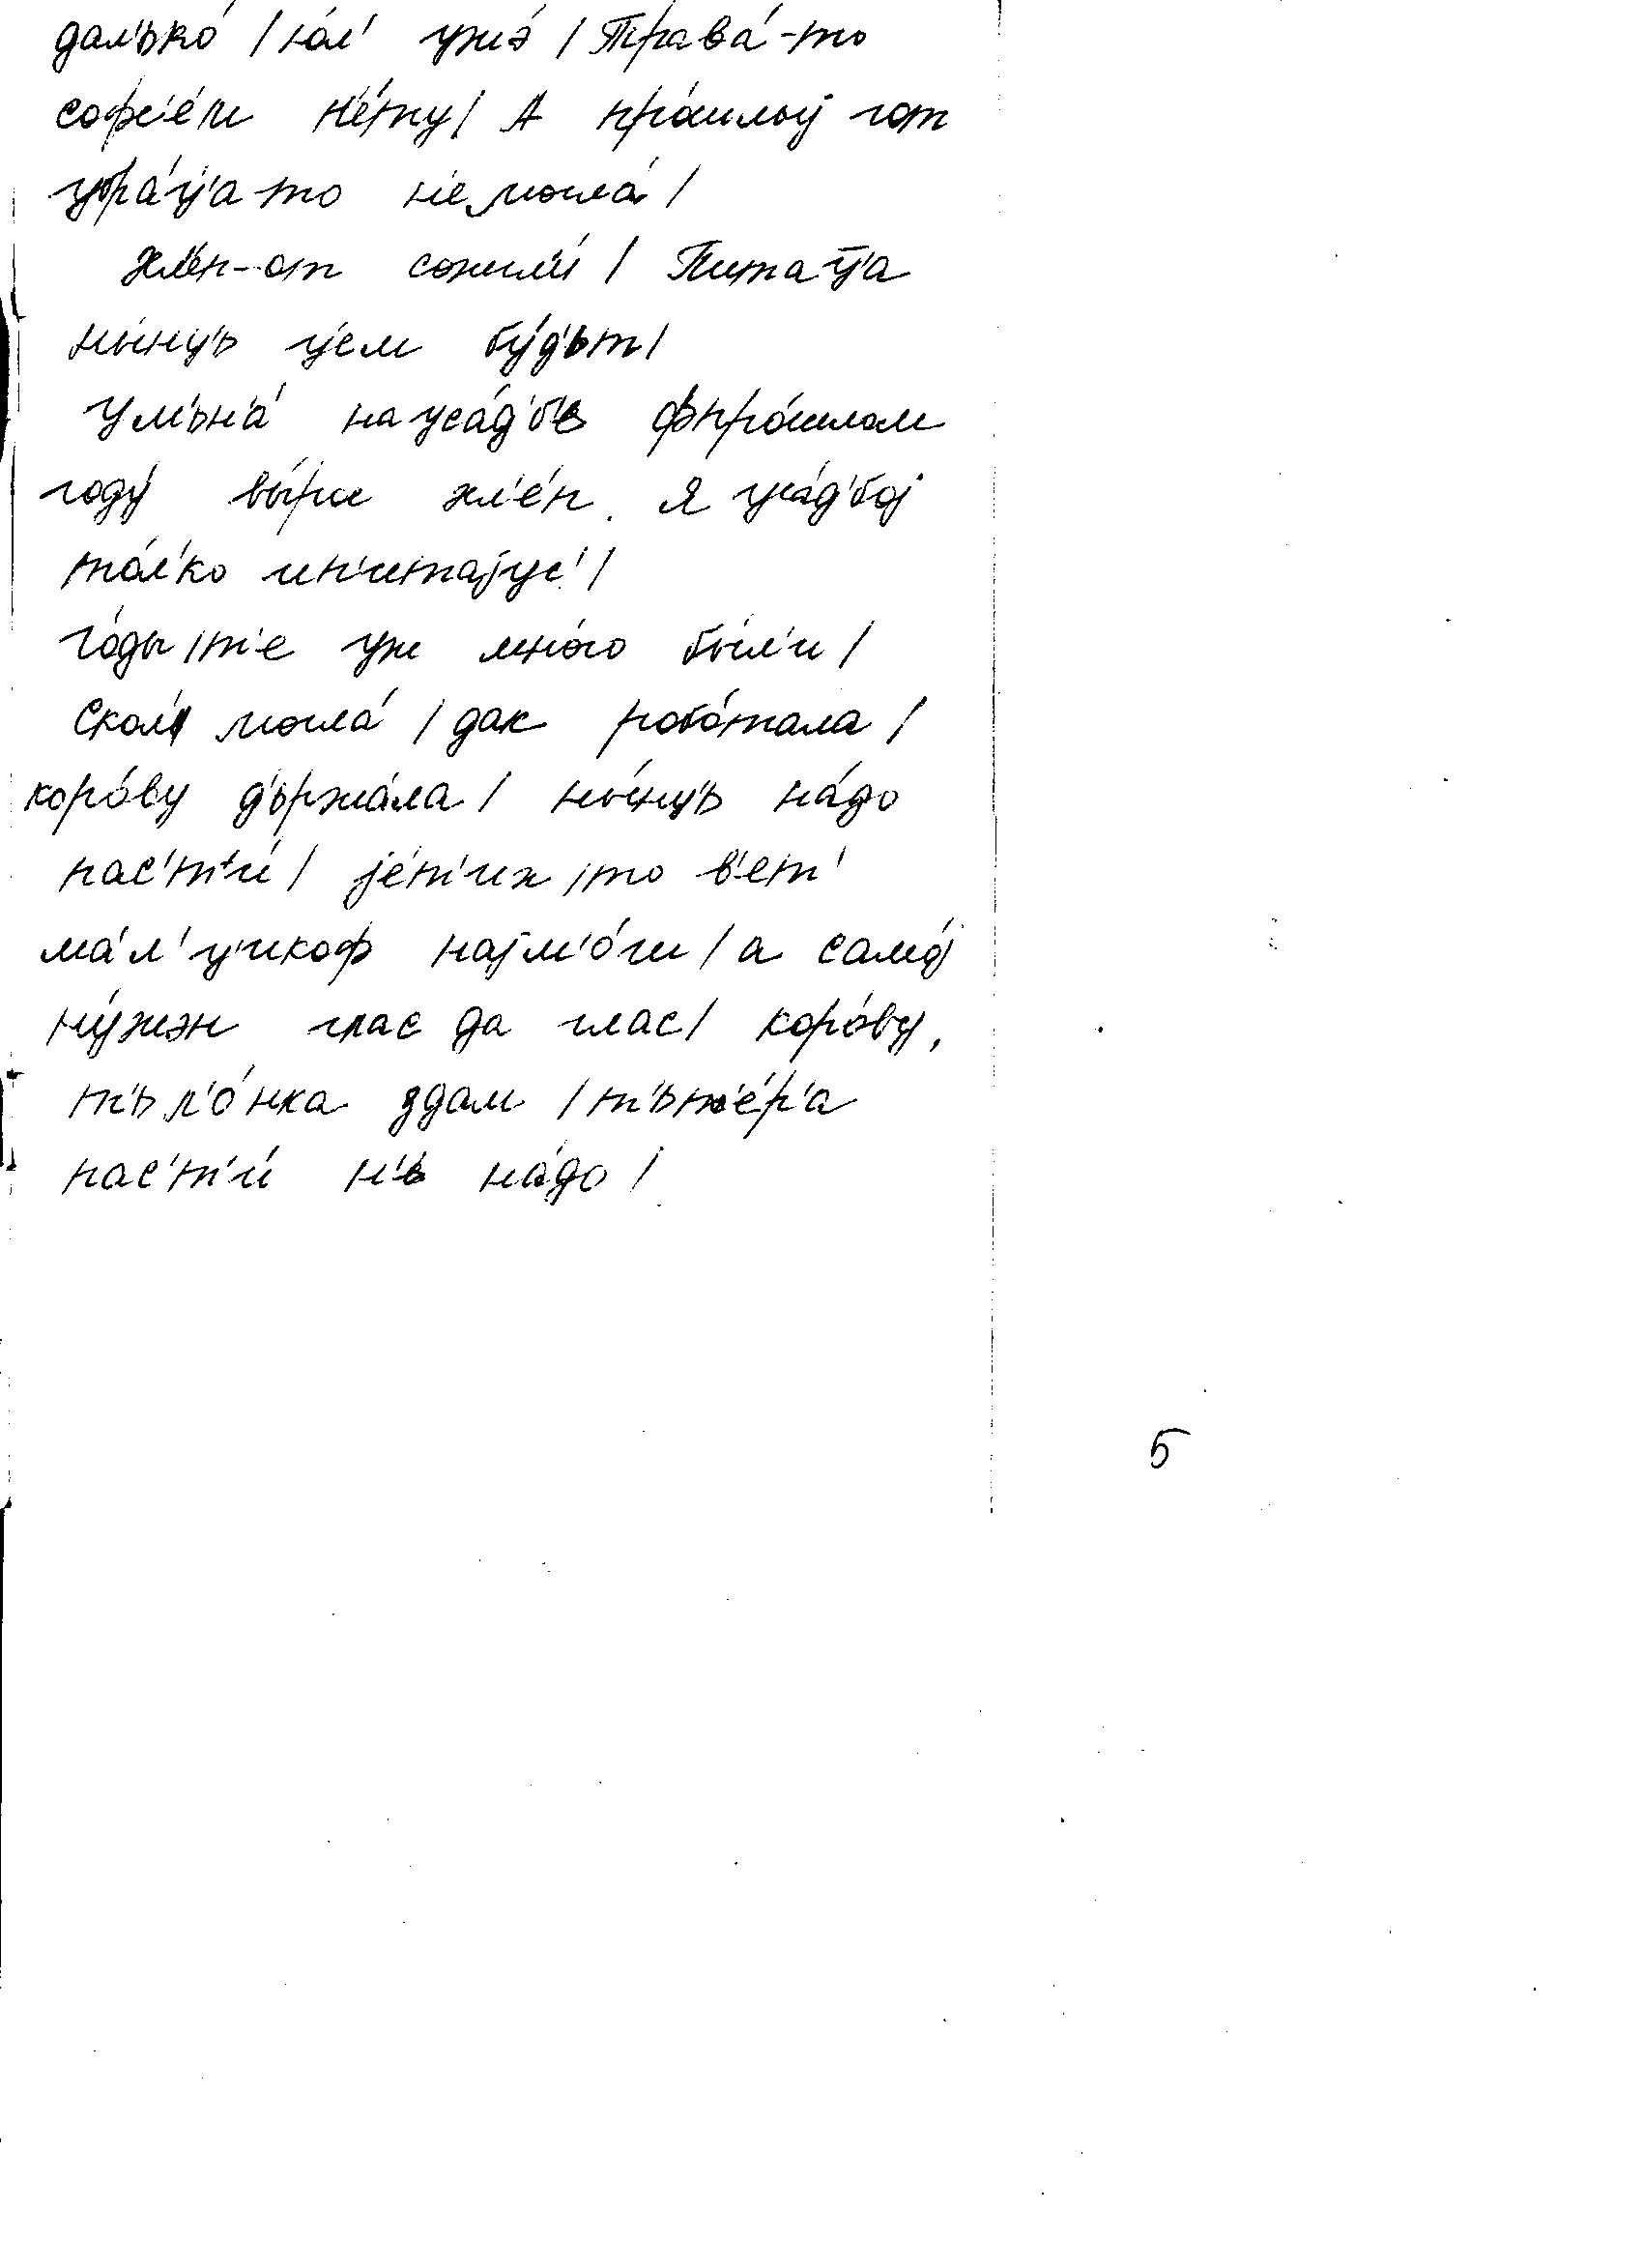 дал'ъко́ / ю́л' ужэ́ / Трава́-то
софс'е́м н'е́ту / А про́шлыj гот
убра́ц'а то н'е могла́ /
хл'еп-от сожгл'и́ / Питац̄'а
ны́нц'ъ ц'ем бу́д'ът /
У м'ън'а́ на уса́д'б'е фпро́шлом
году́ вы́рос хл'е́п. Я уса́д'боj
то́л'ко и п'итаjус' /
го́ды т'е уж мно́го бы́л'и /
Скол' могла́ / дак робо́тала /
коро́ву д'ържа́ла / ны́нц'ъ на́до
пас'т'и́ / jе́т'их то в'ет'
ма́л'ц'икоф наjм'о́ш / а само́j
ну́жэн глас да глас / коро́ву,
т'ъл'о́нка здам / т'ъп'е́р'а
пас'т'и́ н'ь на́до /
5